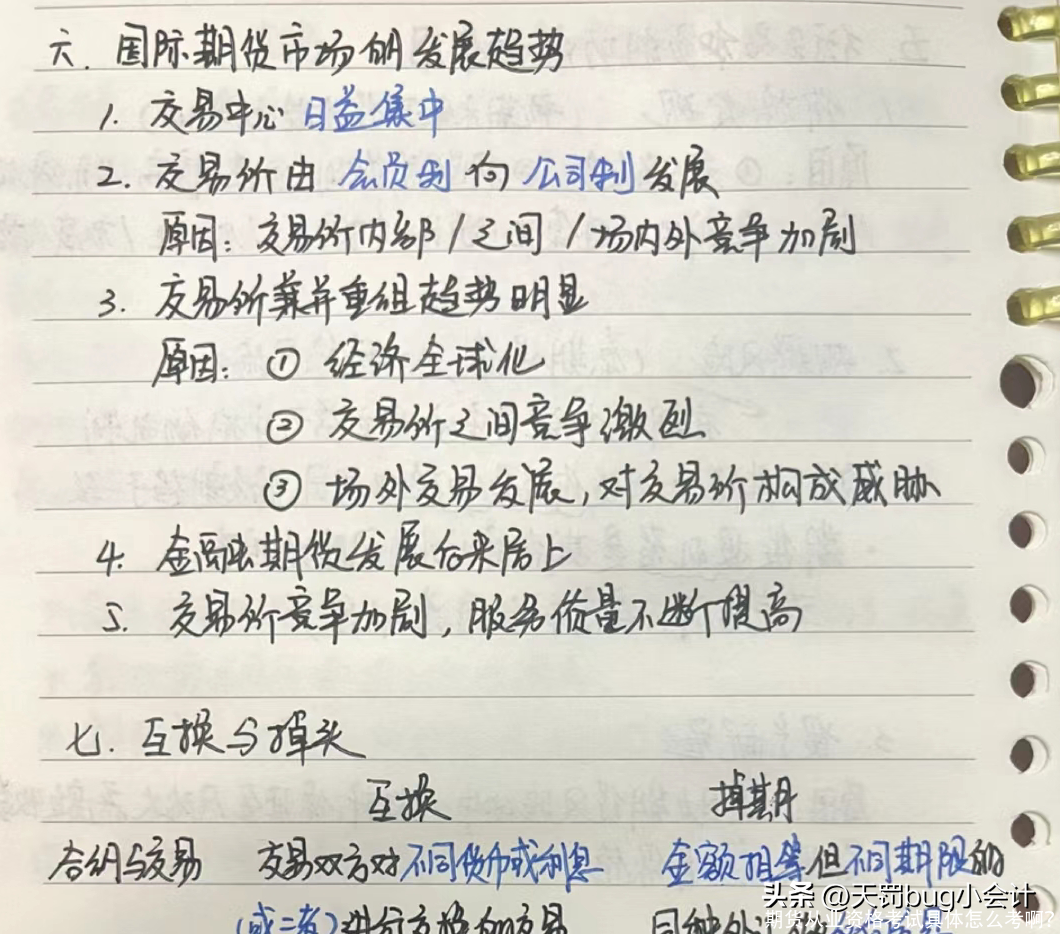 六. 国际期货市场的发展趋势
1. 交易中心日益集中
2. 交易所由会员制向公司制发展
原因: 交易所内部/之间/场内外竞争加剧
3. 交易所兼并重组趋势明显
原因: ① 经济全球化
② 交易所之间竞争激烈
③ 场外交易发展, 对交易所构成威胁
4. 金融期货发展后来居上
5. 交易所竞争加剧, 服务质量不断提高
七. 互换与掉头
互换 掉期
合约与交易 交易双方对不同货币或利息 金额相等但不同期限的
(或二者)进行交换的交易 同种外
头条 @天罚bug小会计
期货从业资格考试具体怎么考啊?